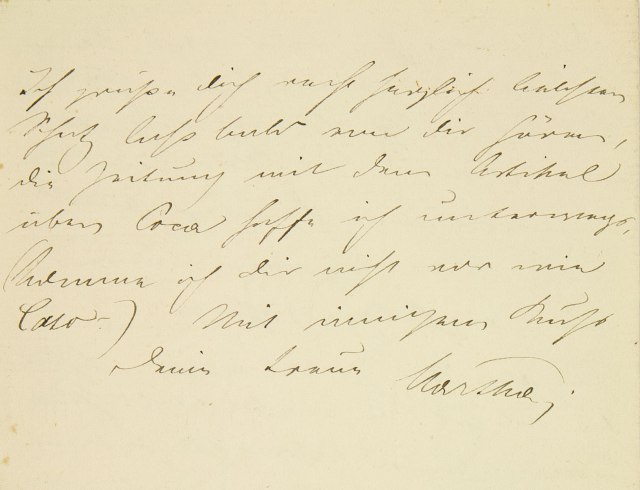 Ich grüße Dich recht herzlich liebster
Schatz laß bald von Dir hören,
die Zeitung mit dem Artikel
über Coca hoffe ich unterwegs,
ich Dir nicht vor wie
Cato.) Mit innigem Kuß
Deine treue Martha